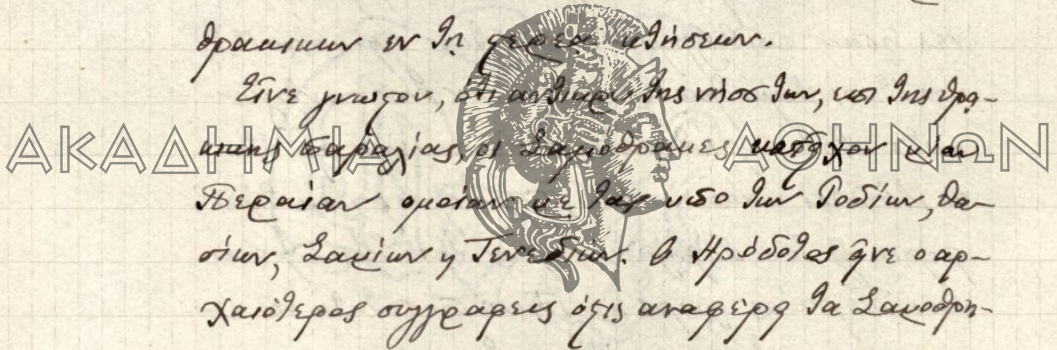 θρακικων εν τη στερεα κτήσεων.
Είνε γνωστον, ότι αντικρυ της νήσου των, επι της θρα-
κικης παραλίας, οι Σαμοθρακες κατηχον μίαν
Περαίαν ομοίαν με των Ροδίων, Θα-
σίων, Σαμίων η Τενεδίων. Ο Ηρόδοτος ηνε ο αρ-
χαιότερος συγγραφευς όστις αναφερη τα Σαμοθρη-
ΑΚΑΔΗΜΙΑ ΑΘΗΝΩΝ